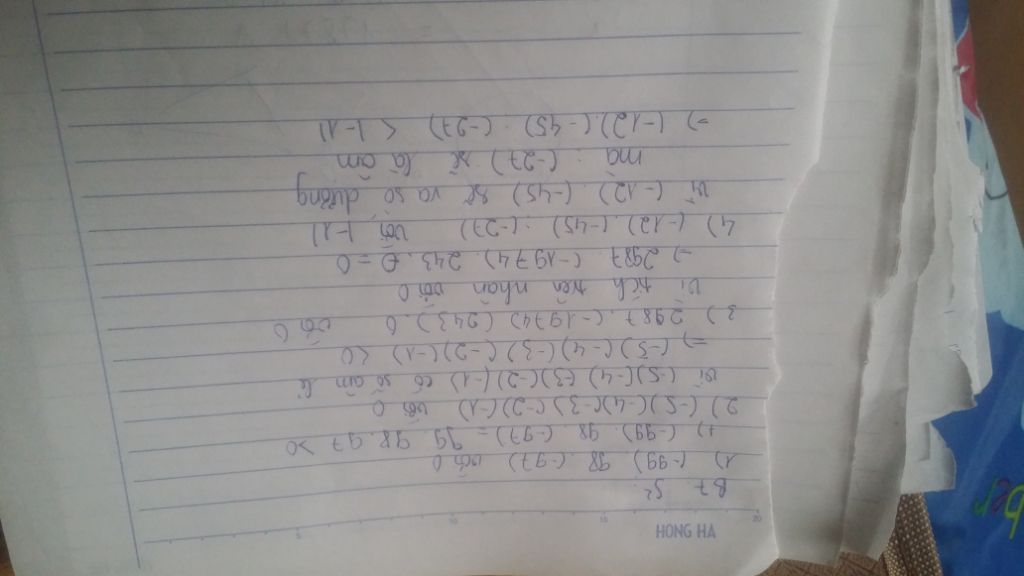 HONG HA
B7 S²
1) (-99). 98. (-97) với 0
+) (-99). 98. (-97) = 99. 98. 97 > 0
2) (-5)(-4)(-3)(-2)(-1) với 0
vì (-5)(-4)(-3)(-2)(-1) có số âm lẻ
=> (-5)(-4)(-3)(-2)(-1) < 0
3) 2987. (-1974) (243). 0 với 0
vì tích trên nhân với 0
=> 2987. (-1974). 243. 0 = 0
4) (-12). (-45). (-27) với |-1|
vì (-12). (-45) sẽ ra số dương
mà: (-27) sẽ là âm
=> (-12). (-45). (-27) < |-1|